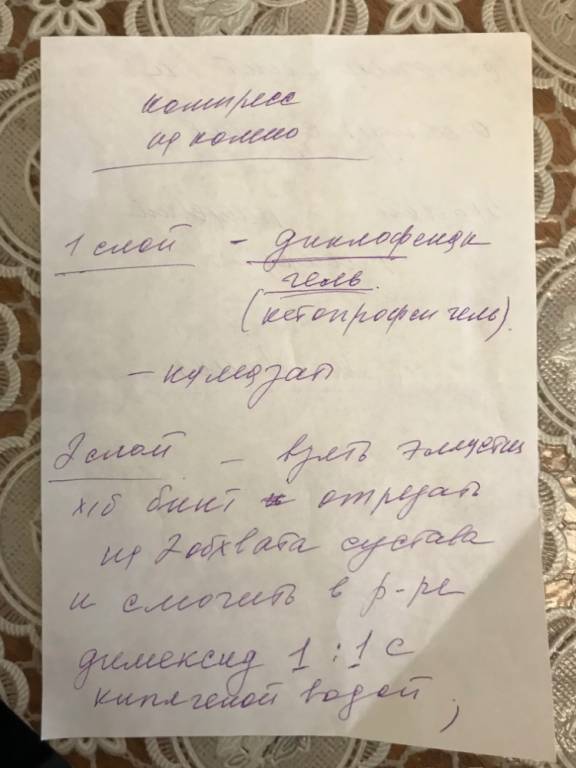 компресс
на колено
1 слой - диклофенак
гель
(кетопрофен гель).
- намазать
2 слой - взять эластич
х/б бинт отрезать
на 2 обхвата сустава
и смочить в р-ре
димексид 1:1 с
кипяченой водой,